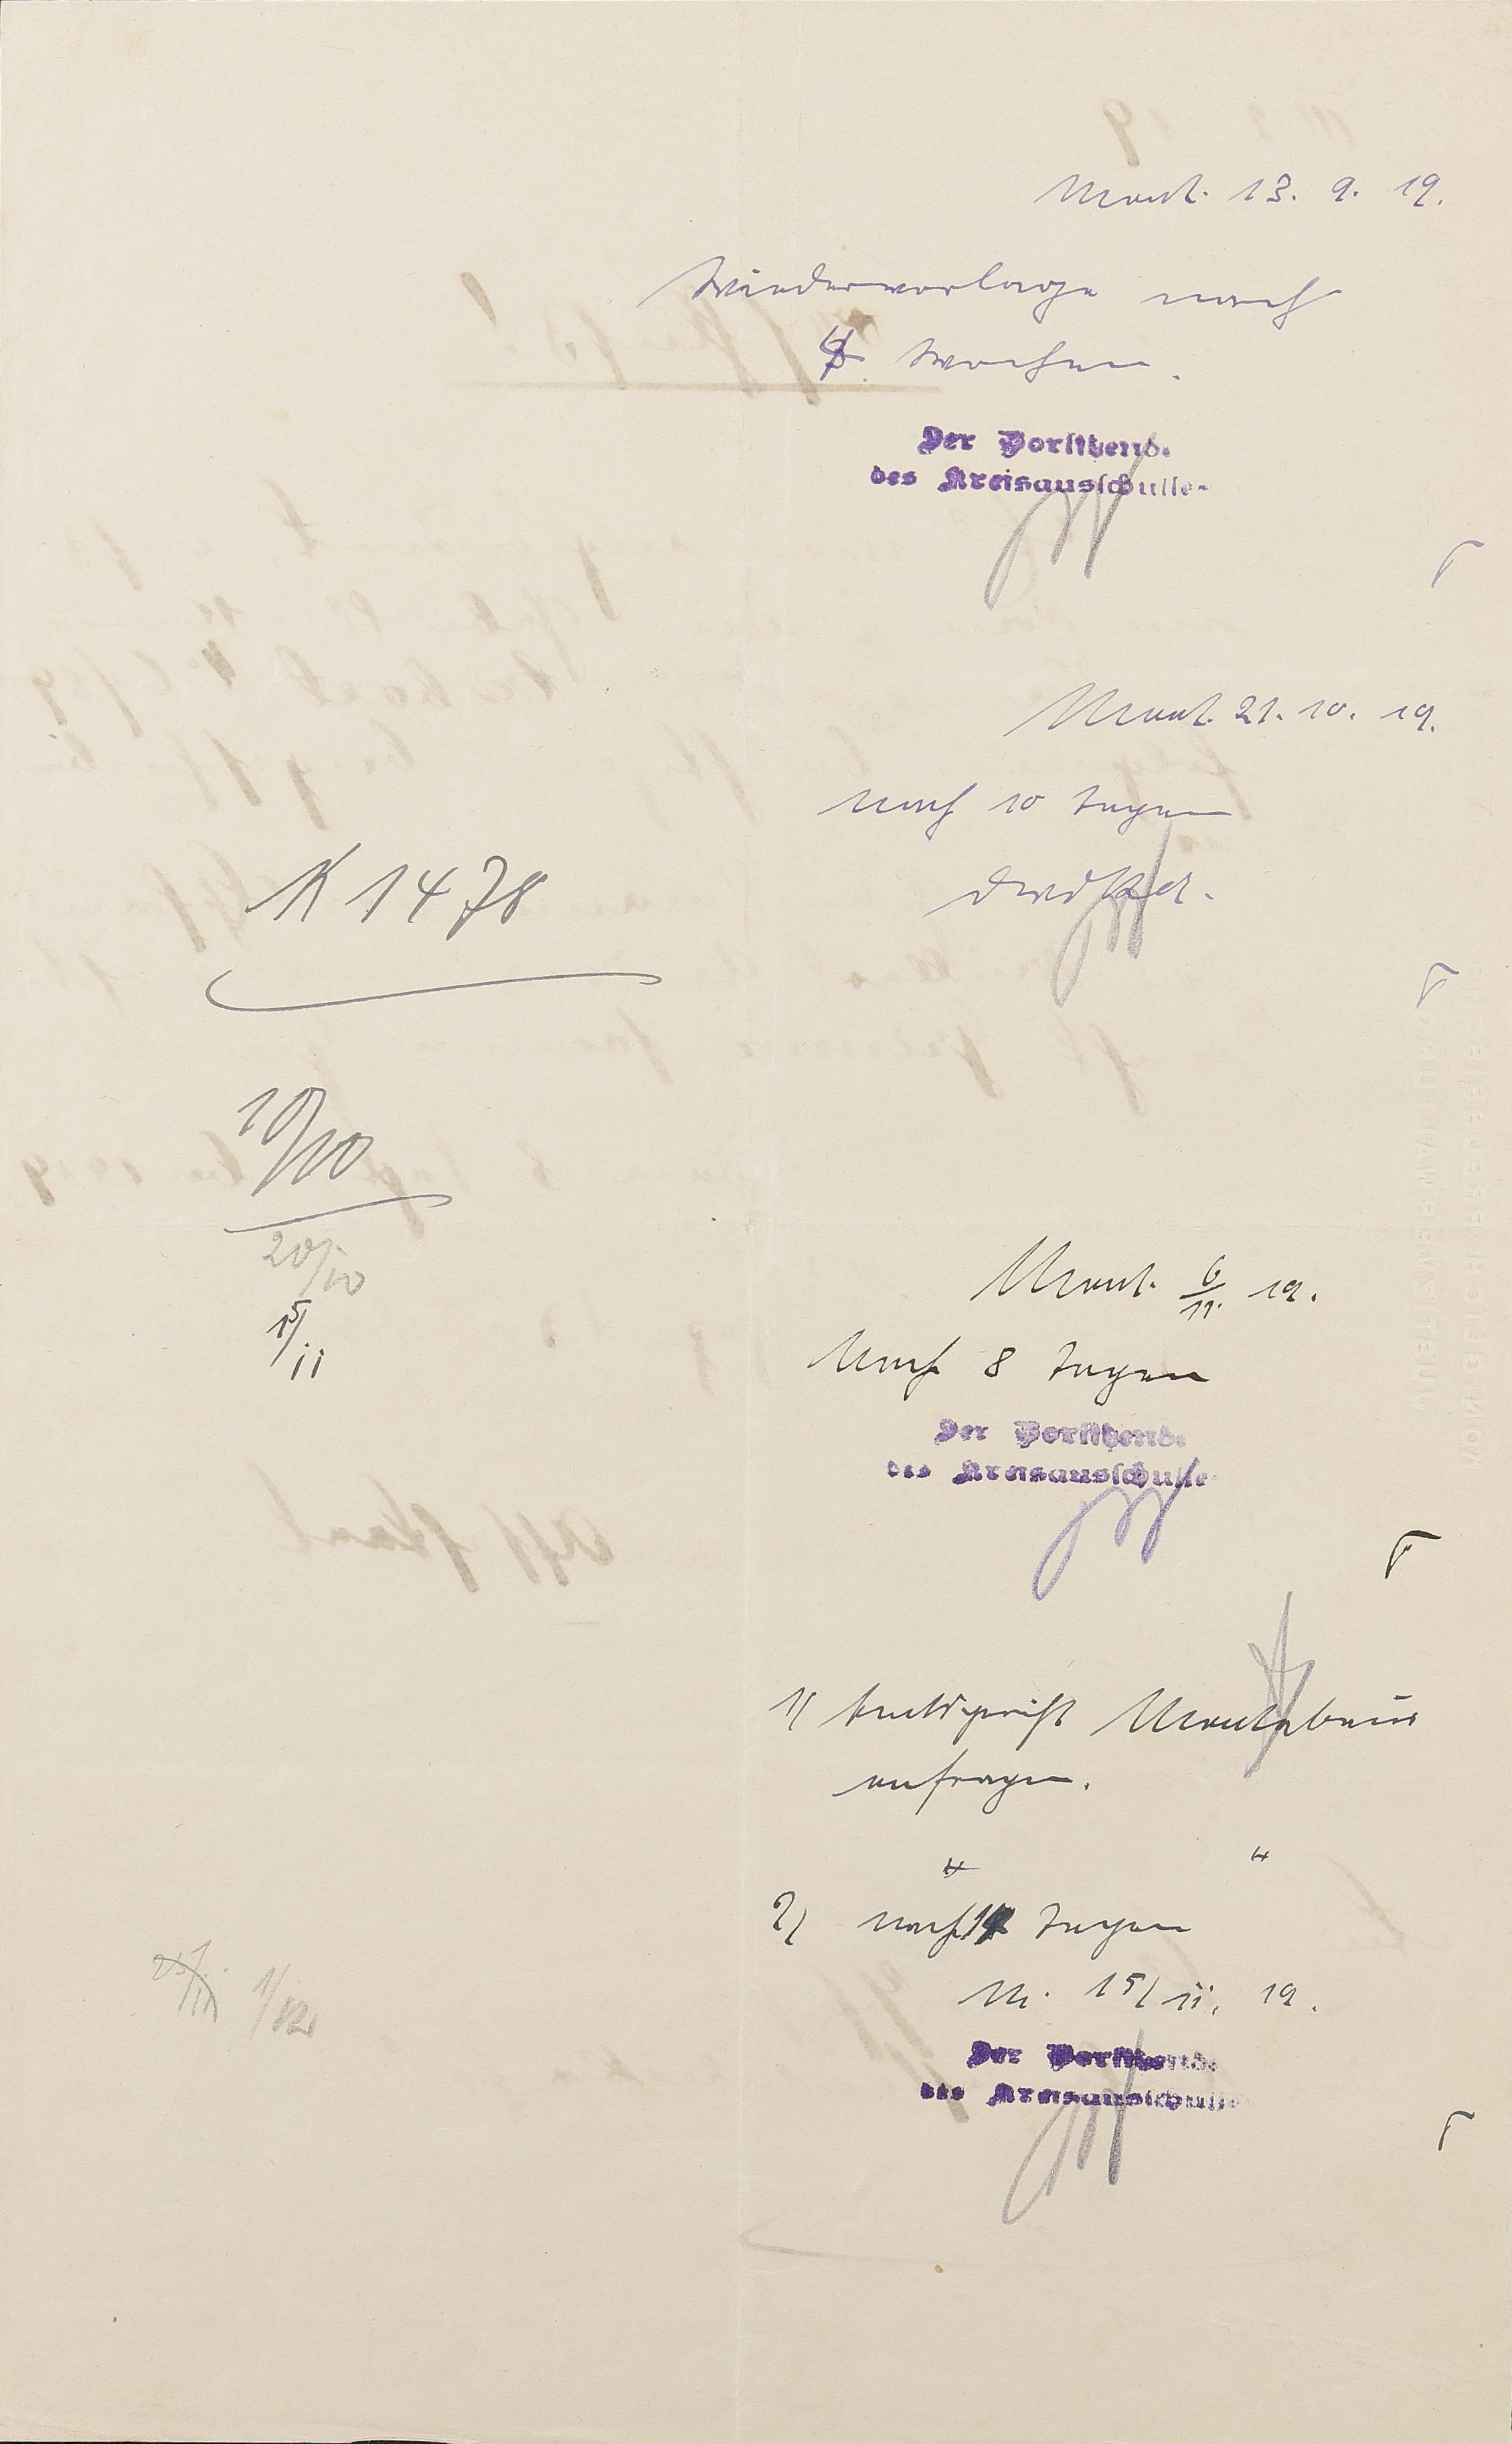 Mont. 13. 9. 19.
Wiedervorlage nach
4 Wochen.
Der Vorsitzend.
des Kreisausschusses
Mont. 21. 10. 19.
nach 10 Tagen
DVdKA.
K 1478
10/10
20/10
15/11
Mont. 6/11. 19.
Nach 8 Tagen
Der Vorsitzend.
des Kreisausschusses
1) Amtsgericht Montabaur
anfragen.
2) nach 14 Tagen
M. 15/11. 19.
25/11 1/12
Der Vorsitzend.
des Kreisausschusses